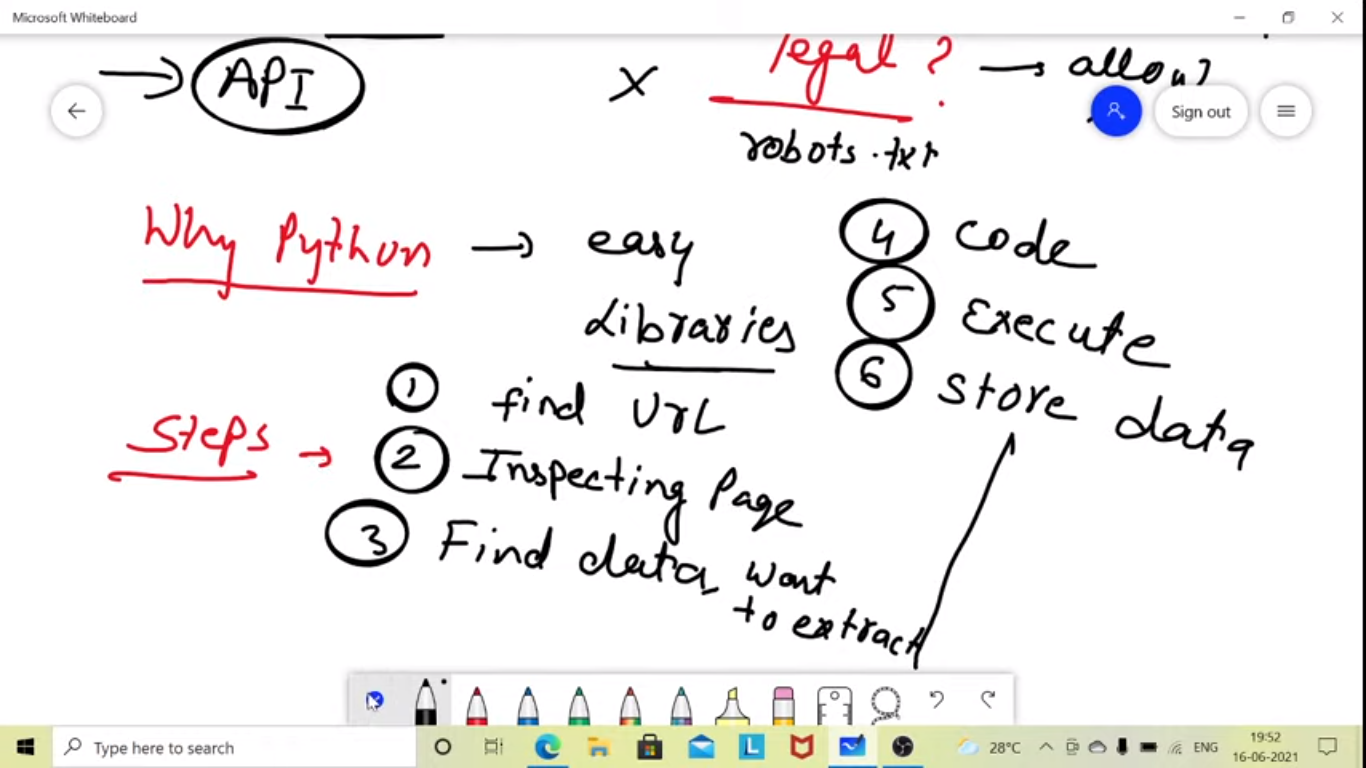 Microsoft Whiteboard
→ API
x legal ? → allow?
robots.txt
Sign out
Why Python → easy
Libraries
Steps →
1 find UrL
2 Inspecting Page
3 Find data want
to extract
4 code
5 Execute
6 store data
Type here to search
L
28°C
ENG
19:52
16-06-2021